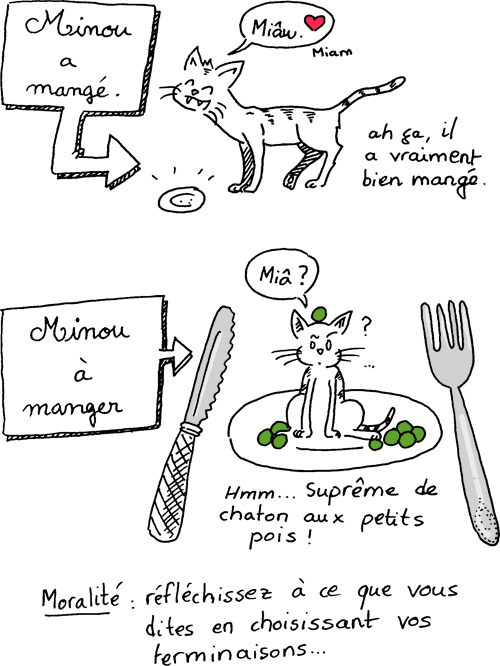 Minou
a
mangé.
Miâw.
Miam
ah ça, il
a vraiment
bien mangé.
Miâ ?
Minou
à
manger
?
...
Hmm... Suprême de
chaton aux petits
pois !
Moralité : réfléchissez à ce que vous
dites en choisissant vos
terminaisons...